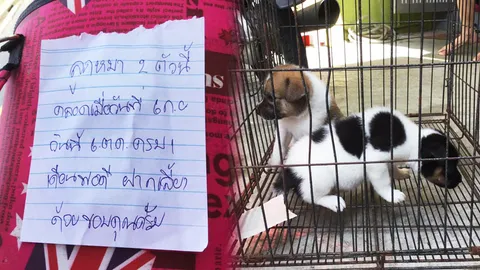 ลูกหมา 2 ตัวนี้
คลอดเมื่อวันที่ 1 กย
วันที่ 1 ตค ครบ 1
เดือนพอดี ฝากเลี้ยง
ด้วย ขอบคุณครับ